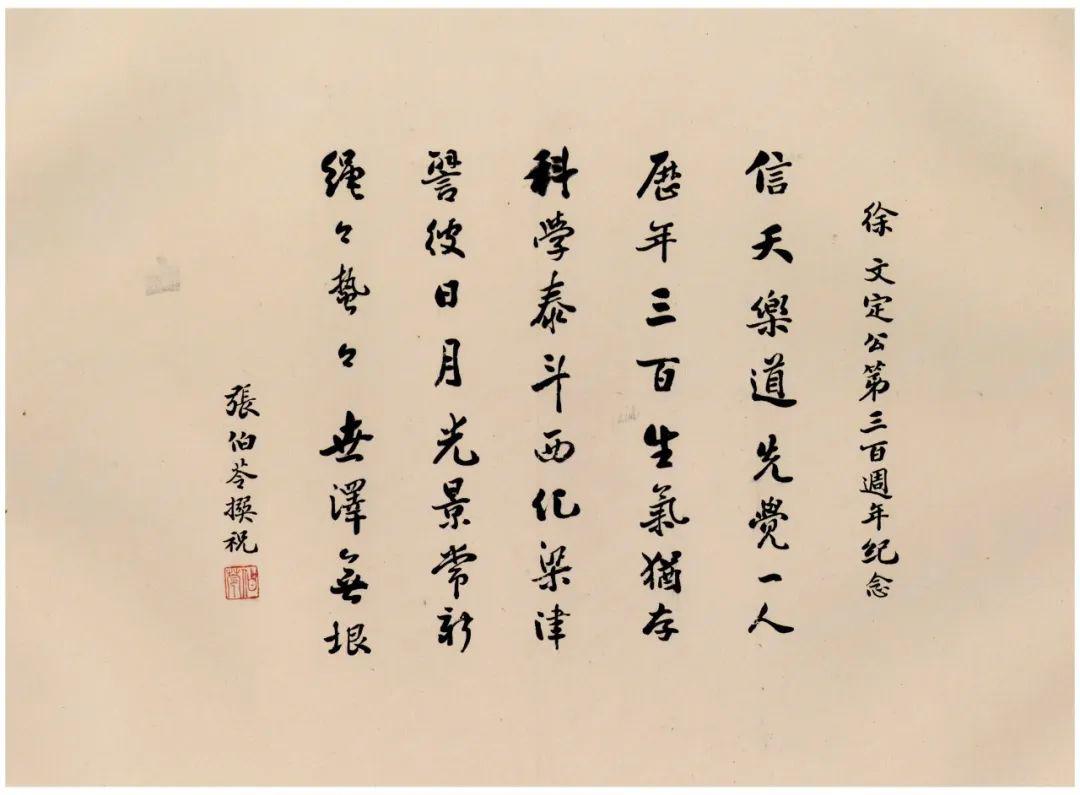 徐文定公第三百週年纪念
信天樂道先覺一人
歷年三百生氣猶存
科學泰斗西化梁津
譬彼日月光景常新
繩々蟄々世澤無垠
張伯苓撰祝
伯苓